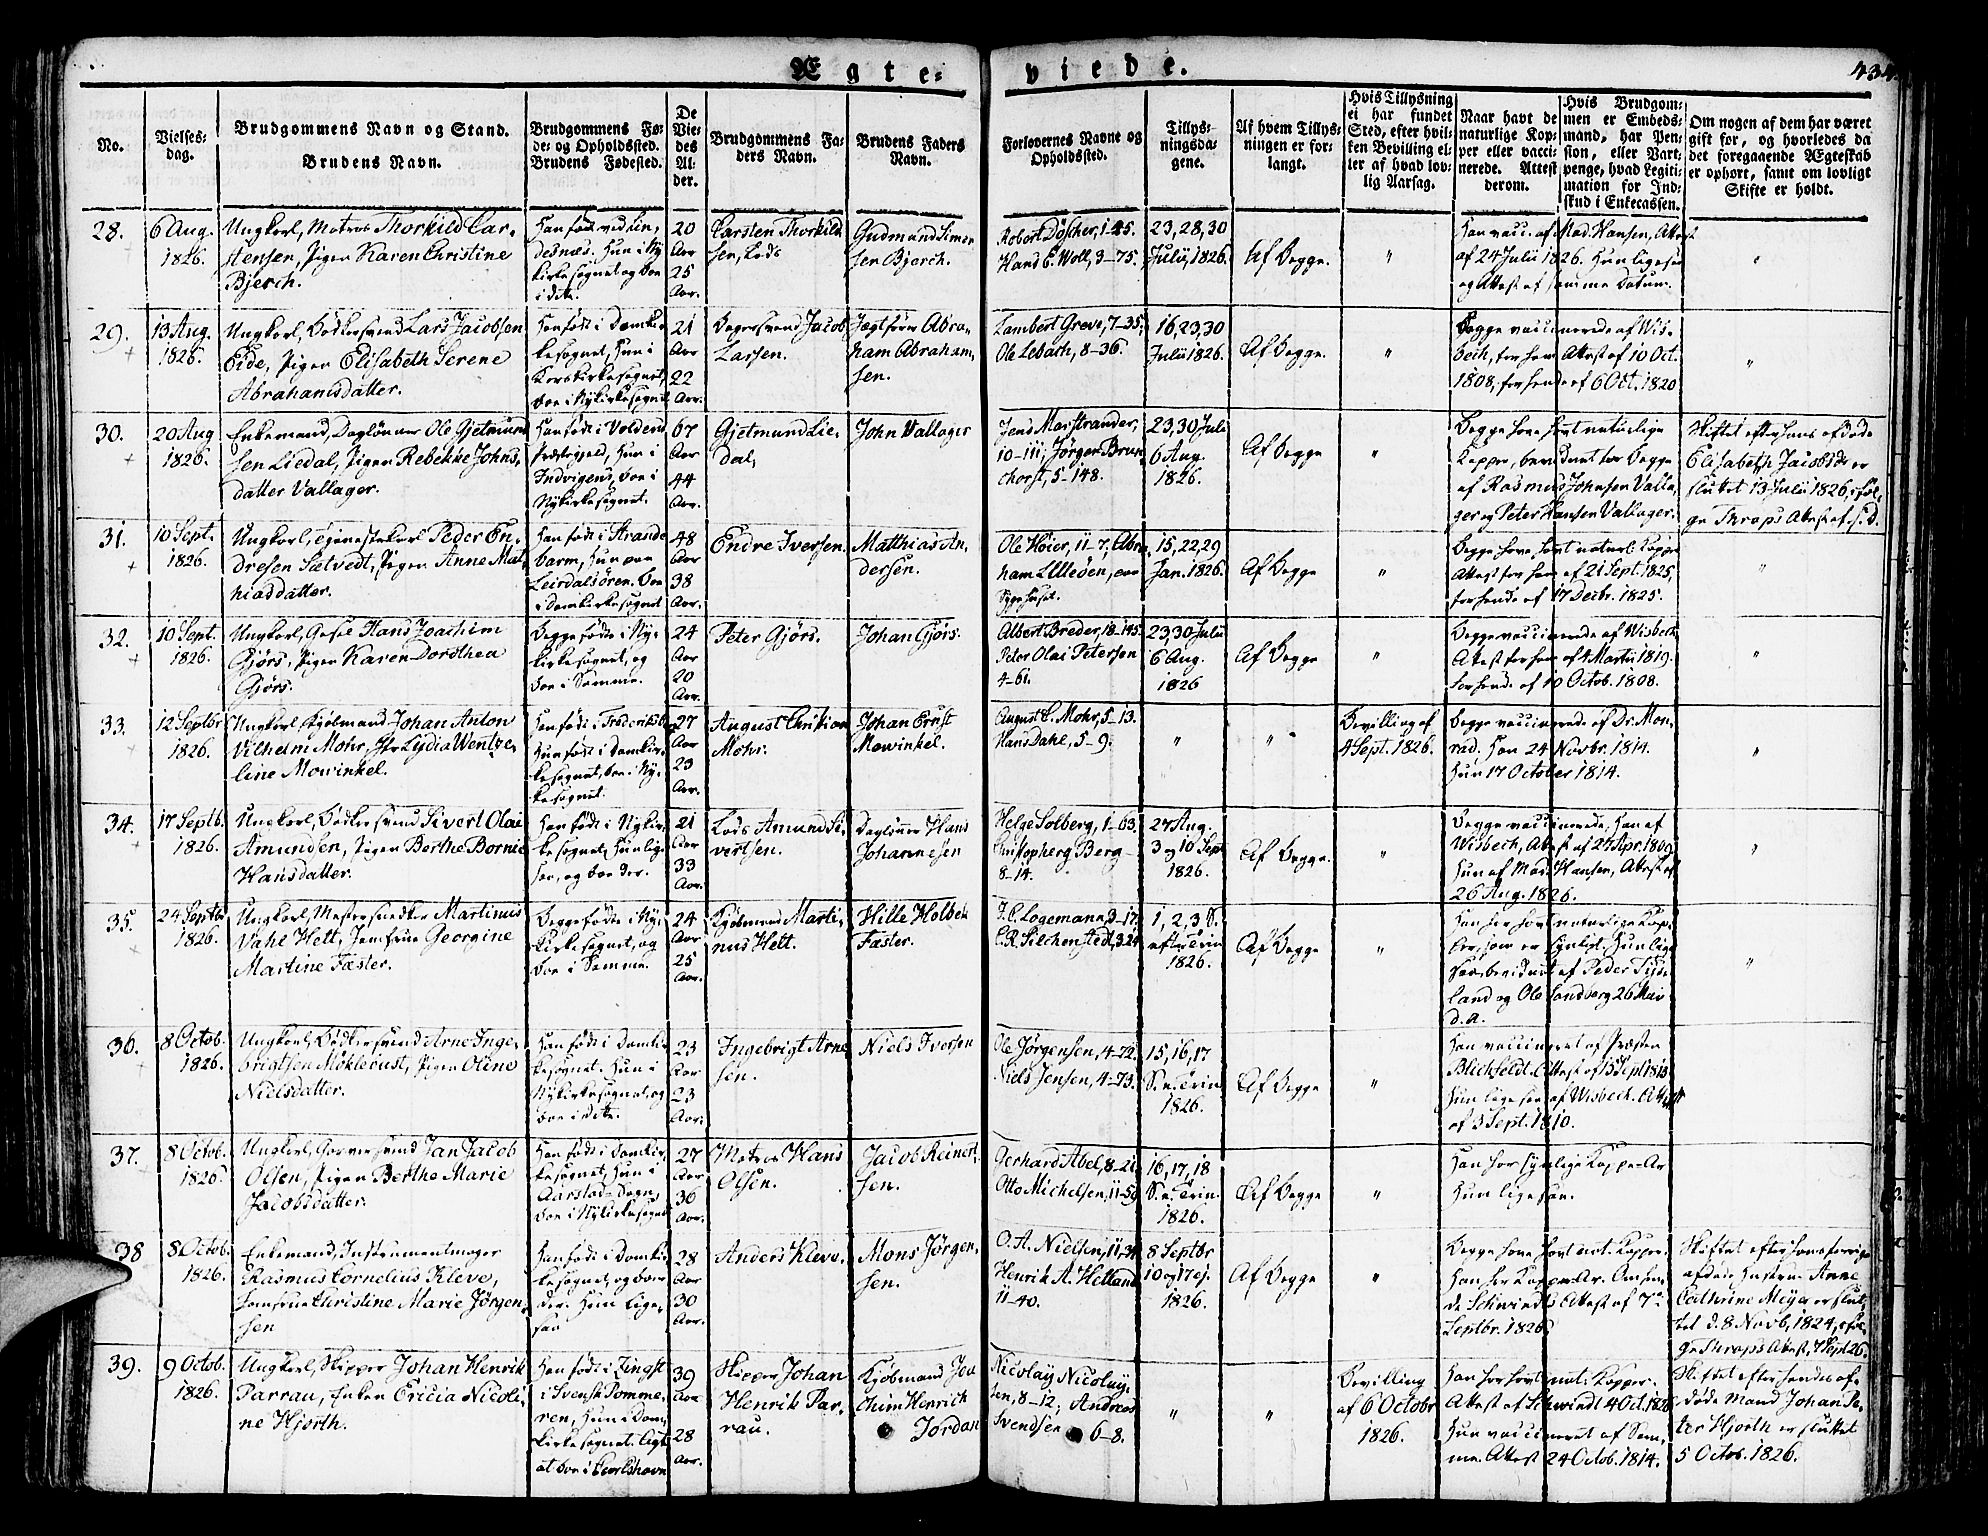 Ægte= viede.
434.
No.
Vielses-
dag.
Brudgommens Navn og Stand.
Brudens Navn.
Brudgommens Fø-
de- og Opholdssted.
Brudens Fødested.
De
Vie-
des
Al-
der.
Brudgommens Fa-
ders Navn.
Brudens Faders
Navn.
Forlovernes Navne og
Opholdssted.
Tillys-
ningsda-
gene.
Af hvem Tillys-
ningen er for-
langt.
Hvis Tillysning
ei har fundet
Sted, efter hvil-
ken Bevilling el-
ler af hvad lov-
lig Aarsag.
Naar havt de
naturlige Kop-
per eller vacci-
nerede. Attest
derom.
Hvis Brudgom-
men er Embeds-
mand, har Pen-
sion, eller Vart-
penge, hvad Legiti-
mation for Ind-
skud i Enkecassen.
Om nogen af dem har været
gift før, og hvorledes da
det foregaaende Ægteskab
er ophørt, samt om lovligt
Skifte er holdt.
28.
6 Aug.
1826.
Ungkarl, Matros Thorkild Car-
stensen, Pigen Karen Christine
Bjerch.
Han født ved Lin-
desnæs. Hun i Ny-
kirkesognet og boe
i dito.
20
Aar
25
Aar.
Carsten Thorkild-
sen, Lods
Gudmund Simon-
sen Bjerch.
Robert Döscher, 1-45.
Hans C. Woll, 3-75.
23, 28, 30
Julii, 1826.
Af Begge.
"
Han vacc. af Mad. Hansen, Attest
af 24 Julii 1826. Hun ligesaa
og Attest af samme Datum.
"
29.
13 Aug.
1826.
Ungkarl, Bödkersvend Lars Jacobsen
Eide, Pigen Elisabeth Serene
Abrahamsdatter.
Han født i Domkir-
kesognet, Hun i
Korskirkesognet,
boe i Nykirkesognet
21
Aar
22
Aar.
Bagersvend Jacob
Larsen.
Jægtfører Abra-
ham Abraham-
sen.
Lambert Greve, 7-35.
Ole Lebach, 8-36.
16, 23, 30
Julii 1826.
Af Begge.
"
Begge vaccinerede af Wis-
bech, for ham Attest af 10 Oct.
1808, for hende af 6 Oct. 1820
"
30.
20 Aug
1826.
Enkemand, Daglønner Ole Gjetmund-
sen Liedal, Pigen Rebekke Johns-
datter Vallager.
Han født i Voldens
Præstegjeld, Hun i
Indvigens, boe i
Nykirkesognet.
67
Aar
44
Aar.
Gjetmund Lie-
dal.
John Vallager
Jens Marstrander,
10-111; Jörgen Brun-
chorst, 5-148.
23, 30 Juli
6 Aug.
1826.
Af Begge
"
Begge have havt naturlige
Kopper, bevidnet for Begge
af Rasmus Johnsen Valla-
ger og Peter Hansen Vallager.
Skiftet efter hans afdøde
Elisabeth Jacobsdr er
sluttet 13 Julii 1826, iföl-
ge Thraps Attest af s. D.
31.
10 Sept.
1826.
Ungkarl, Tjenestekarl Peder En-
dresen Sætvedt, Pigen Anne Mat-
hiasdatter.
Han født i Strande-
barm, Hun paa
Leirdalsören. boe
i Domkirkesognet
48
Aar
38
Aar.
Endre Iversen.
Matthias An-
dersen.
Ole Höier, 11-7, Abra-
ham Lilleöen, paa
Sygehuset.
15, 22, 29
Jan. 1826.
Af Begge
"
Begge have havt naturl. Kopper
Attest for ham af 21 Sept. 1825,
for hende af 17 Decbr. 1825.
"
32.
10 Sept.
1826.
Ungkarl, Gasse Hans Joachim
Gjörs, Pigen Karen Dorothea
Gjörs.
Begge fødte i Ny-
kirkesognet, og
boe i Samme.
24
Aar
20
Aar.
Peter Gjörs.
Johan Gjörs.
Albert Breder, 18-145
Peter Olai Petersen
4-61.
23, 30 Julii
6 Aug.
1826
Af Begge
"
Begge vaccinerede af Wisbech,
Attest for ham af 4 Martii 1819.
for hende af 10 Octob. 1808.
"
33.
12 Septbr
1826.
Ungkarl, Kjöbmand Johan Anton
Vilhelm Mohr, Jfr Lydia Wentze-
line Mowinkel.
Han født i Frederiksb.
Hun født i Domkir-
kesognet, boe i Ny-
kesognet.
27
Aar
23
Aar.
August Christian
Mohr.
Johan Ernst
Mowinkel.
August C. Mohr, 5-13.
Hans Dahl, 5-9.
"
"
Bevilling af
4 Sept. 1826.
Begge vaccinerede af Dr. Mon-
rad. Han 24 Novbr. 1814.
Hun 17 October 1814.
"
34.
17 Septb.
1826.
Ungkarl, Bödkersvend Sivert Olai
Amundsen, Pigen Berthe Bornie
Hansdatter.
Han født i Nykir-
kesognet, Hun lige-
saa, og boe der.
21
Aar
33
Aar.
Lods Amund Si-
vertsen.
Daglönner Hans
Johannesen
Helge Solberg, 1-63.
Christopherg Berg
8-14.
27 Aug.
3 og 10 Sept
1826.
Af Begge.
"
Begge vaccinerede. Han af
Wisbech, Attest af 27 Apr. 1809.
Hun af Mad. Hansen, Attest af
26 Aug. 1826.
"
35.
24 Septbr
1826.
Ungkarl, Mestersnedker Martinus
Vahl Hett, Jomfrue Georgine
Martine Fæster.
Begge fødte i Ny-
kirkesognet, og
boe i Samme.
24
Aar
25
Aar.
Kjöbmand Marti-
nus Hett.
Hille Holbek
Fæster.
J. C. Logemann, 3-17.
C. R. Silchenstedt, 3-24
1, 2, 3 S.
efter Trin
1826.
Af Begge
"
Han har havt naturlige Kop-
per, som er synligt. Hun lige-
saa, bevidnet af Peder Tys-
land og Ole Sandberg 26 Mai
d. a.
"
36.
8 Octob.
1826.
Ungkarl, Bödkersvend Arne Inge-
brigtsen Möklebust, Pigen Oline
Nielsdatter.
Han født i Domkir-
kesognet. Hun i
Nykirkesognet, og
boe i dito.
23
Aar
23
Aar.
Ingebrigt Arne-
sen.
Niels Iversen
Ole Jörgensen, 4-72.
Niels Jensen, 4-73.
15, 16, 17
S. e. Trin
1826.
Af Begge
"
Han vaccineret af Præsten
Blichfeldt. Attest af 15 Sept 1813
Hun ligesaa af Wisbech. Attest
af 3 Sept. 1810.
37.
8 Octob.
1826.
Ungkarl, Garversvend Jan Jacob
Olsen, Pigen Berthe Marie
Jacobsdatter.
Han født i Domkir-
kesognet, Hun i
Aarstad-Sogn,
boe i Nykirkesognet
27
Aar
36
Aar.
Matros Hans
Olsen.
Jacob Reinert-
sen.
Gerhard Abel, 8-21.
Otto Michelsen, 11-59
16, 17, 18
S. e. Trin.
1826.
Af Begge
"
Han har synlige Kopper Ar
Hun ligesaa.
38
8 Octob.
1826.
Enkemand, Instrumentmager
Rasmus Cornelius Kleve,
Jomfrue Christine Marie Jörgen-
sen
Han født i Domkir-
kesognet, og boer
der. Hun lige-
saa
28
Aar
30
Aar.
Anders Kleve.
Mons Jörgen-
sen.
O. A. Nielsen, 11-34
Henrik A. Helland
11-40.
8 Septbr
10 og 17 ej.
1826.
Af Begge
"
Begge have havt nat. Kopper.
Han har Kopper Ar. Om hen-
de Schwindts Attest af 7de
Septbr. 1826.
Skiftet efter hans forrige
afdøde Hustrue Anne
Cathrine Meyer er slut-
tet d. 8 Novb. 1824, iföl-
ge Thraps Attest, 7 Sept 26.
39.
9 Octob.
1826.
Ungkarl, Skipper Johan Henrik
Parrau, Enken Ericia Nicoli-
ne Hjorth.
Han født i Zingst
i Svensk Pomme-
ren, Hun i Dom-
kirkesognet. Agt
at boe i Carlshavn
39
Aar
28
Aar.
Skipper Johan
Henrik Par-
rau.
Kjöbmand Joa-
chim Henrich
Jordan
Nicolay Nicolay-
sen, 8-12; Andreas
Svendsen 6-8.
"
"
Bevilling
af 6 Octobr
1826.
Han har havt nat. Kopper.
Attest af Schwindt 4 Oct. 1826
Hun vaccineret af Sam-
me. Attest 24 Octob. 1814.
Skiftet efter hendes af-
døde Mand Johan Pe-
ter Hjorth er sluttet
5 Octob. 1826.